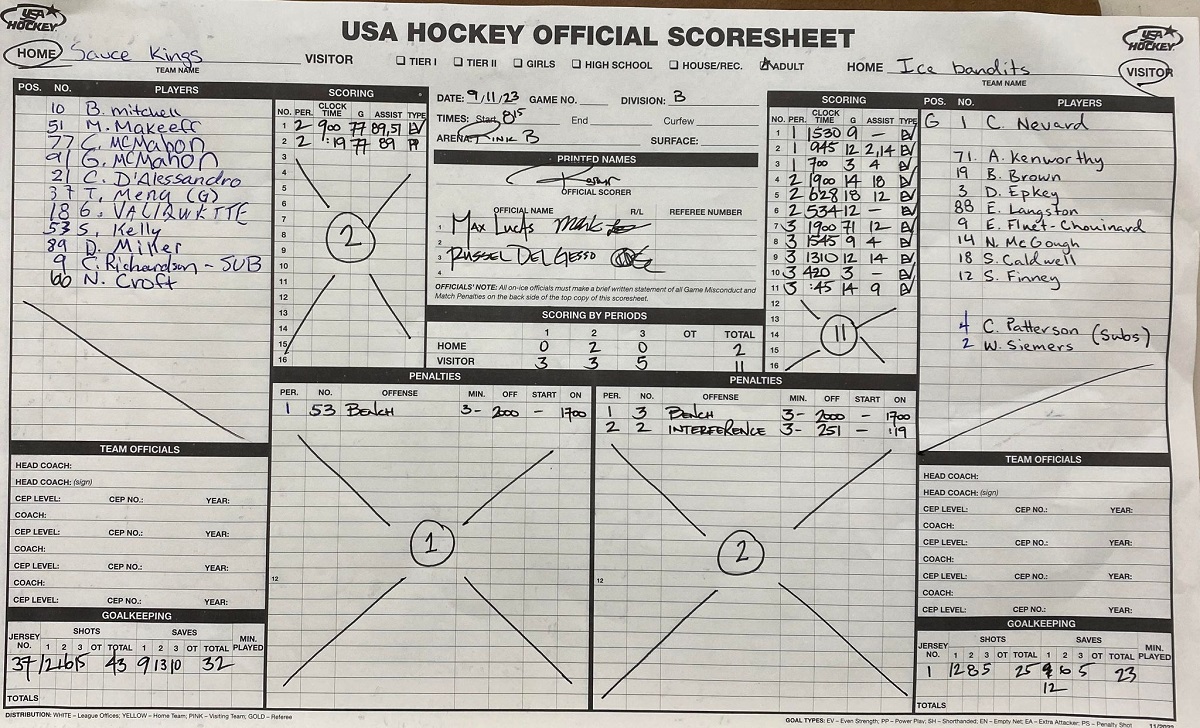 USA HOCKEY
USA HOCKEY OFFICIAL SCORESHEET
USA HOCKEY
HOME Sauce Kings VISITOR
TEAM NAME
TIER I TIER II GIRLS HIGH SCHOOL HOUSE/REC. ADULT
HOME Ice bandits VISITOR
TEAM NAME
POS. NO. PLAYERS
10 B. mitchell
51 M. Makeeff
77 C. MCMahon
91 G. MCMahon
21 C. D'Alessandro
37 T. Meng (G)
18 G. VALIQUETTE
53 S. Kelly
89 D. Miller
9 C. Richardson - SUB
60 N. Croft
SCORING
NO. PER. CLOCK TIME G ASSIST TYPE
1 2 900 77 89,51 EV
2 2 :19 77 89 PP
3
4
5
6
7
8
9
10
11
12
13
14
15
16
2
DATE: 9/11/23 GAME NO. DIVISION: B
TIMES: Start 815 End Curfew
ARENA: Rink B SURFACE:
PRINTED NAMES
OFFICIAL SCORER
OFFICIAL NAME R/L REFEREE NUMBER
1 Max Lucas
2
3 RUSSEL DEL GESSO
4
OFFICIALS' NOTE: All on-ice officials must make a brief written statement of all Game Misconduct and
Match Penalties on the back side of the top copy of this scoresheet.
SCORING BY PERIODS
1 2 3 OT TOTAL
HOME 0 2 0 2
VISITOR 3 3 5 11
SCORING
NO. PER. CLOCK TIME G ASSIST TYPE
1 1 1530 9 — EV
2 1 945 12 2,14 EV
3 1 700 3 4 EV
4 2 1900 14 18 EV
5 2 628 18 12 EV
6 2 534 12 — EV
7 3 1900 71 12 EV
8 3 1545 9 4 EV
9 3 1310 12 14 EV
10 3 420 3 — EV
11 3 :45 14 9 EV
12
13
14
15
16
11
POS. NO. PLAYERS
G 1 C. Nevard
71. A. Kenworthy
19 B. Brown
3 D. Epkey
88 E. Langston
9 E. Finet-Chouinard
14 N. McGough
18 S. Caldwell
12 S. Finney
4 C. Patterson (Subs)
2 W. Siemers
PENALTIES
PER. NO. OFFENSE MIN. OFF START ON
1 53 BENCH 3- 2000 – 1700
12
1
PENALTIES
PER. NO. OFFENSE MIN. OFF START ON
1 3 BENCH 3- 2000 – 1700
2 2 INTERFERENCE 3- 251 – :19
12
2
TEAM OFFICIALS
HEAD COACH:
HEAD COACH: (sign)
CEP LEVEL: CEP NO.: YEAR:
COACH:
CEP LEVEL: CEP NO.: YEAR:
COACH:
CEP LEVEL: CEP NO.: YEAR:
COACH:
CEP LEVEL: CEP NO.: YEAR:
GOALKEEPING
JERSEY NO. SHOTS SAVES MIN. PLAYED
1 2 3 OT TOTAL 1 2 3 OT TOTAL
37 12 16 15 43 9 13 10 32
TOTALS
TEAM OFFICIALS
HEAD COACH:
HEAD COACH: (sign)
CEP LEVEL: CEP NO.: YEAR:
COACH:
CEP LEVEL: CEP NO.: YEAR:
COACH:
CEP LEVEL: CEP NO.: YEAR:
COACH:
CEP LEVEL: CEP NO.: YEAR:
GOALKEEPING
JERSEY NO. SHOTS SAVES MIN. PLAYED
1 2 3 OT TOTAL 1 2 3 OT TOTAL
1 12 8 5 25 6 5 23
12
TOTALS
DISTRIBUTION: WHITE – League Offices; YELLOW – Home Team; PINK – Visiting Team; GOLD – Referee
GOAL TYPES: EV – Even Strength; PP – Power Play; SH – Shorthanded; EN – Empty Net; EA – Extra Attacker; PS – Penalty Shot